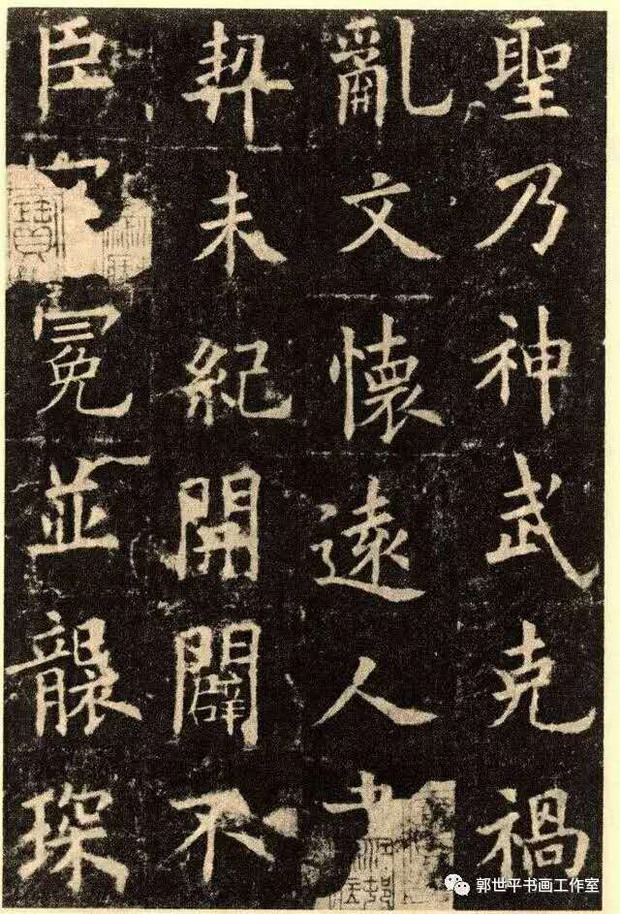 聖乃神武克禍
亂文懷遠人
契未紀開闢不
臣冕並襲琛
郭世平书画工作室